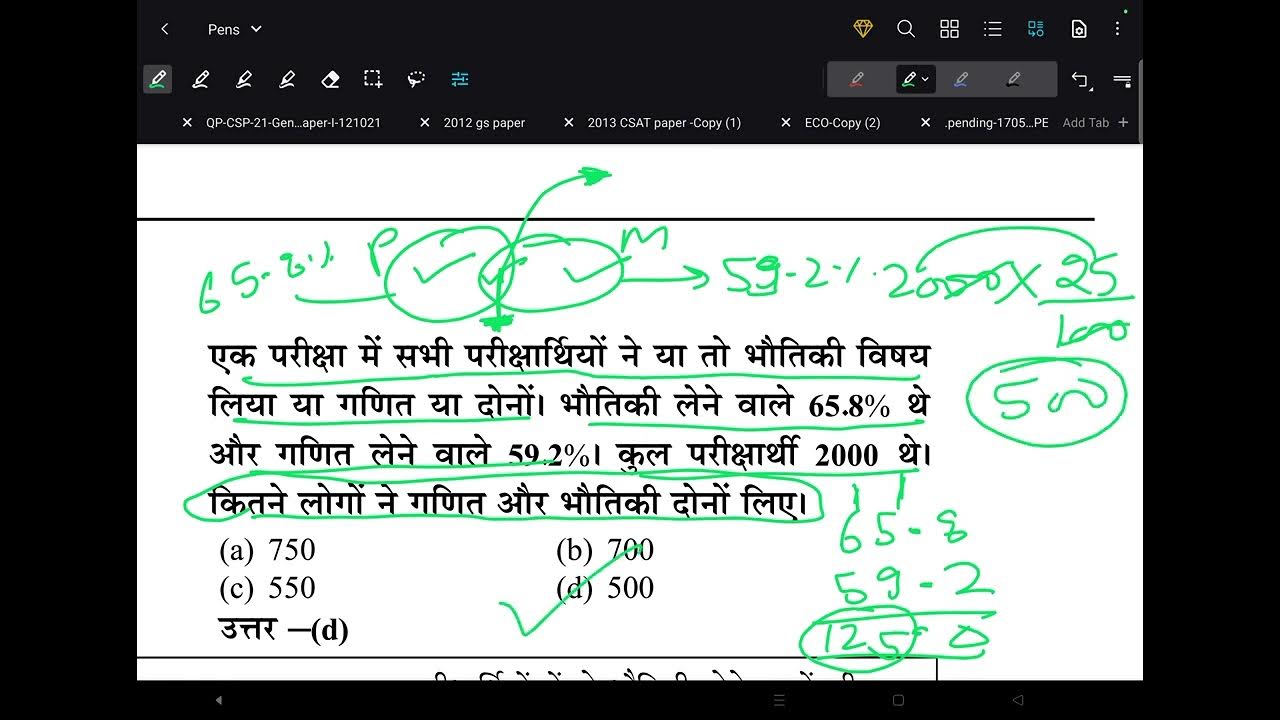 Pens
QP-CSP-21-Gen...aper-I-121021
2012 gs paper
2013 CSAT paper -Copy (1)
ECO-Copy (2)
.pending-1705...PE
Add Tab +
65.8% P M 59.2% 2000 × 25
100
500
एक परीक्षा में सभी परीक्षार्थियों ने या तो भौतिकी विषय
लिया या गणित या दोनों। भौतिकी लेने वाले 65.8% थे
और गणित लेने वाले 59.2%। कुल परीक्षार्थी 2000 थे।
कितने लोगों ने गणित और भौतिकी दोनों लिए।
65.8
59.2
125.0
(a) 750 (b) 700
(c) 550 (d) 500
उत्तर –(d)